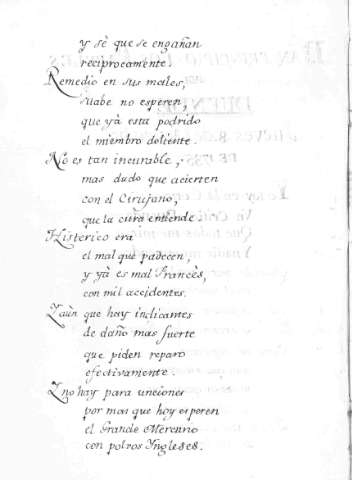 y sè que se engañan
reciprocamente.
Remedio en sus males,
suabe no esperen,
que yà esta podrido
el miembro doliente.
No es tan incurable,
mas dudo que acierten
con el Cirujano,
que la cura entiende.
Histerico era
el mal que padecen,
y yà es mal Frances,
con mil accidentes.
Yaùn que hay indicantes
de daño mas fuerte
que piden reparo
efectivamente.
Y no hay para unciones
por mas que hoy esperen
el Grande Mercurio
con polvos Yngleses.